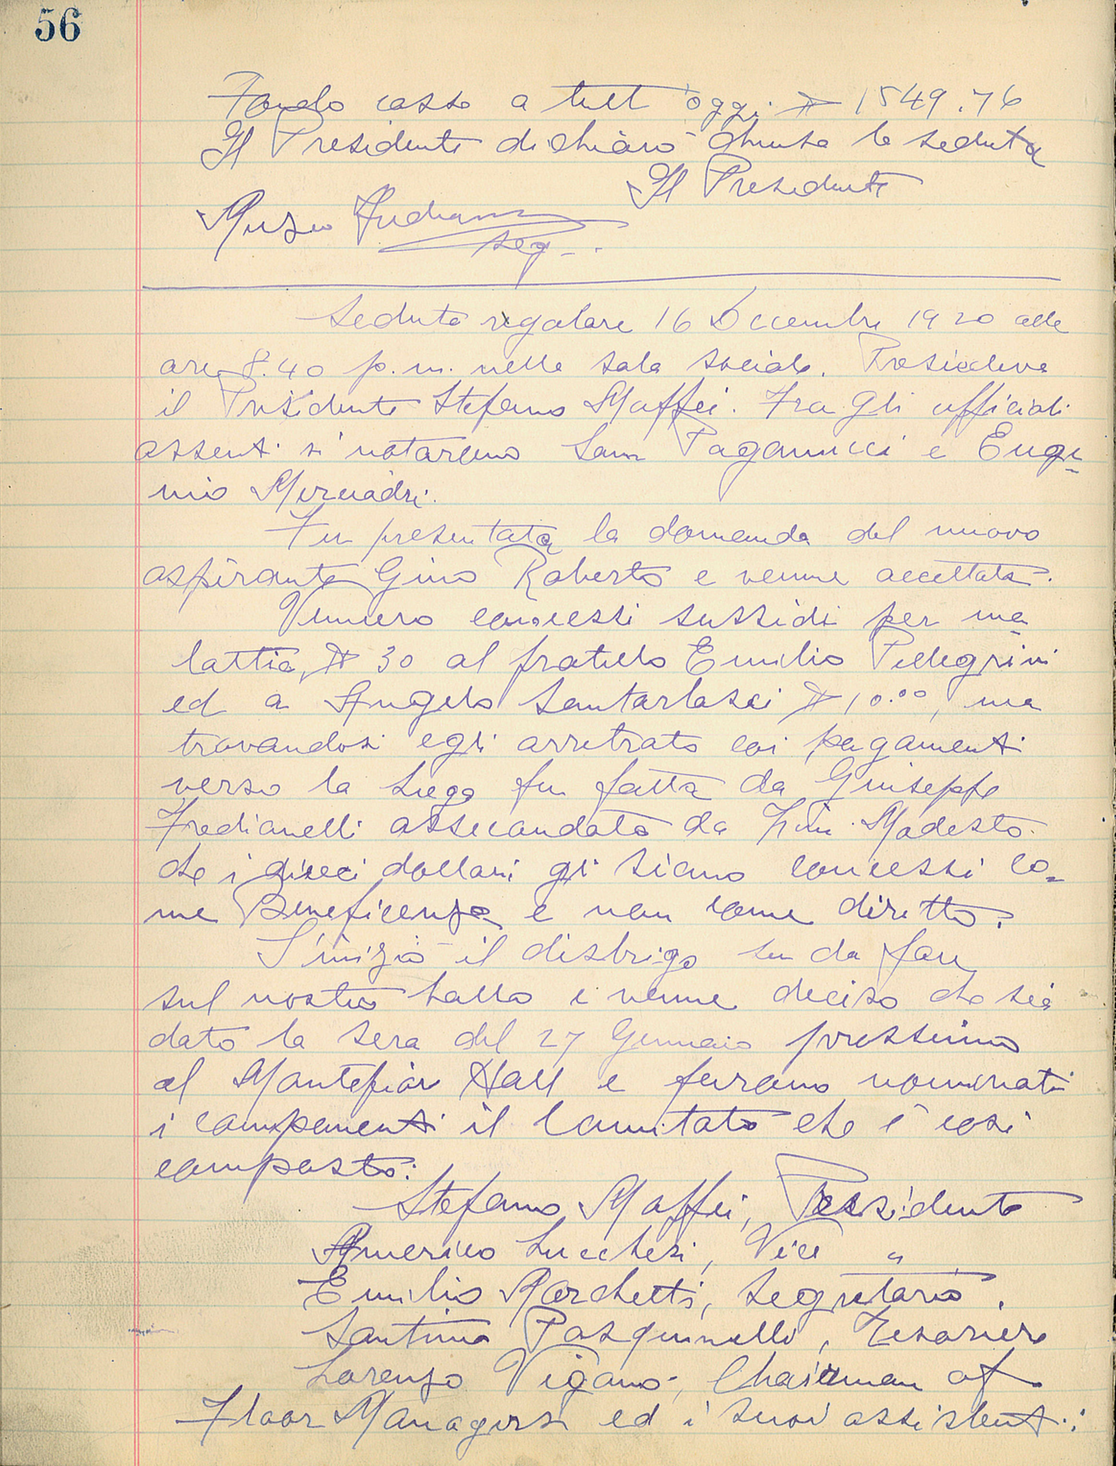 56
Fondo cassa a tutt'oggi $ 1549.76
Il Presidente dichiarò chiusa la seduta
Il Presidente
seg.
Seduta regolare 16 Decembre 1920 alle
ore 8.40 p.m. nella sala sociale. Presiedeva
il Presidente Stefano Maffei. Fra gli officiali
assenti si notarono Sam Paganucci e Euge=
nio
Fu presentata la domanda del nuovo
aspirante Gino Roberto e venne accettata.
Vennero concessi sussidi per ma=
lattia, $ 30 al fratello Emilio Pellegrini
ed a Angelo Santarlasci $ 10.00, ma
trovandosi egli arretrato coi pagamenti
verso la Lega fu fatta da Giuseppe
Fredianelli assecondato da Modesto
che i dieci dollari gli siano concessi co=
me Beneficenza e non come diritto.
S'iniziò il disbrigo su da fare
sul nostro ballo e venne deciso che sia
dato la sera del 27 Gennaio prossimo
al Montefior Hall e furono nominati
i componenti il Comitato che è così
composto:
Stefano Maffei, Presidente
Americo Lucchesi, Vice "
Emilio Marchetti, Segretario.
Santino Pasquinelli, Tesoriere
Lorenzo Viganò, Chairman of
Floor Managers ed i suoi assistenti: